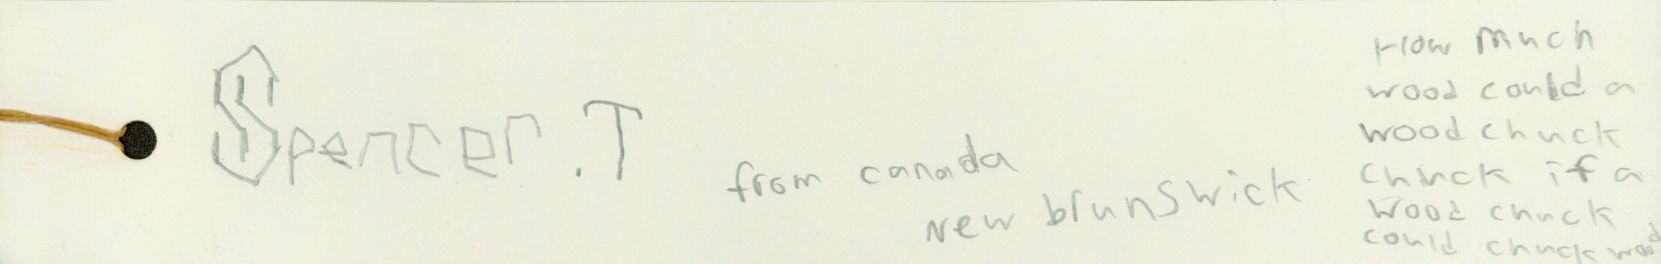 Spencer.T
from canada
New brunswick
How much
wood could a
wood chuck
chuck if a
wood chuck
could chuck wood